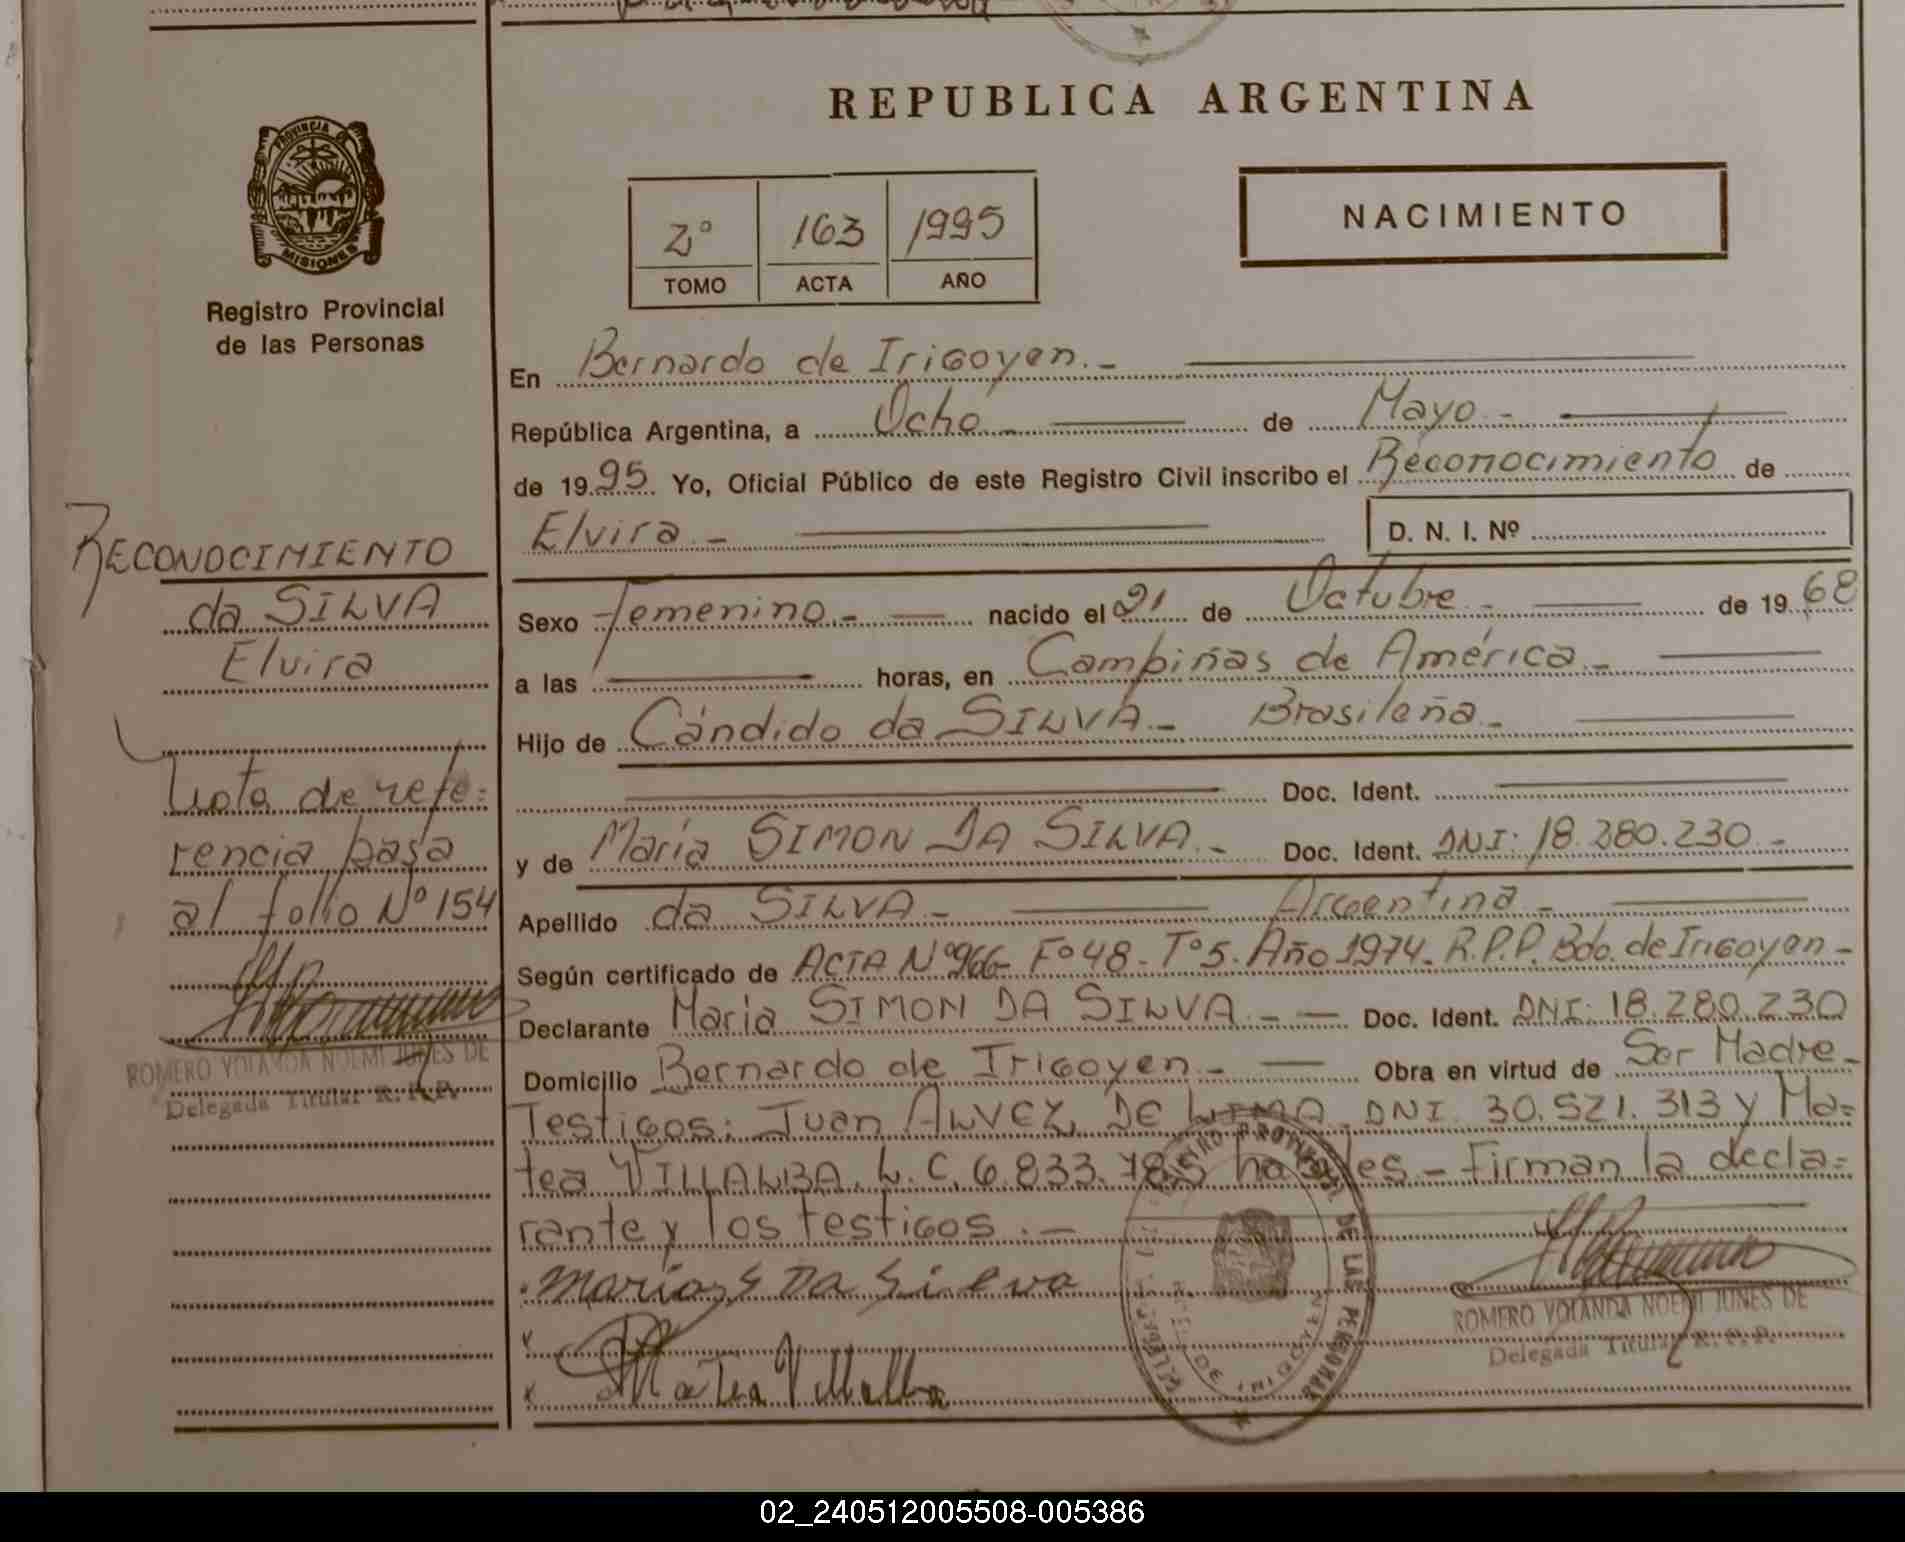 REPUBLICA ARGENTINA
PROVINCIA DE
MISIONES
Registro Provincial
de las Personas
2º 163 1995
TOMO ACTA AÑO
NACIMIENTO
En Bernardo de Irigoyen.-
República Argentina, a Ocho.- de Mayo.-
de 1995. Yo, Oficial Público de este Registro Civil inscribo el Reconocimiento de
Elvira.- D. N. I. Nº
Sexo Femenino.- nacido el 21 de Octubre.- de 1968
a las horas, en Campiñas de América.-
Hijo de Cándido da SILVA.- Brasileña.-
Doc. Ident.
y de María SIMON DA SILVA.- Doc. Ident. DNI: 18.280.230.-
Apellido da SILVA.- Argentina.-
Según certificado de ACTA Nº966- Fº48- Tº5. Año 1974. R.P.P. Bdo. de Irigoyen-
Declarante María SIMON DA SILVA.- Doc. Ident. DNI: 18.280.230
Domicilio Bernardo de Irigoyen.- Obra en virtud de Ser Madre-
Testigos: Juan ALVEZ DE LIMA. DNI. 30.521.313 y Ma=
tea VILLALBA. L.C. 6.833.785 hábiles- Firman la decla=
rante y los testigos.-
Maria S Da Silva
Matea Villalba
ROMERO YOLANDA NOEMI JUNES DE
Delegada Titular R. P. P.
REGISTRO PROVINCIAL DE LAS PERSONAS
DE IRIGOYEN
RECONOCIMIENTO
da SILVA
Elvira
Nota de refe=
rencia pasa
al folio Nº 154
ROMERO YOLANDA NOEMI JUNES DE
Delegada Titular R. P. P.
02_240512005508-005386